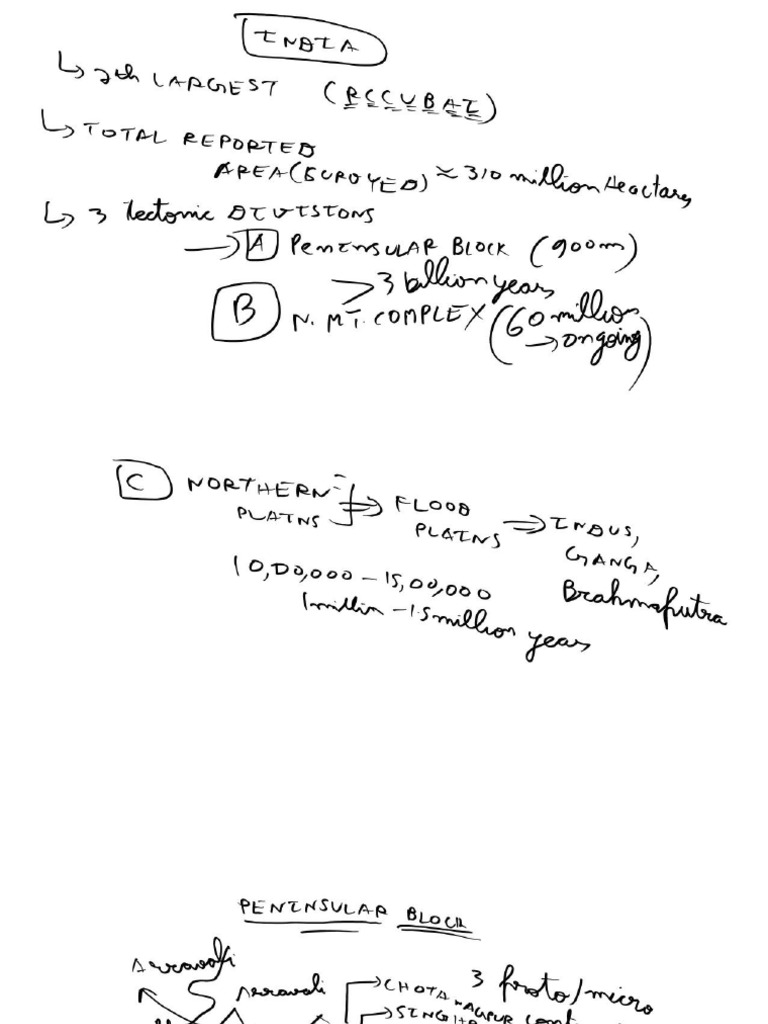 INDIA
7th LARGEST (RCCUBAI)
TOTAL REPORTED
AREA (SURVYED) ≈ 310 million Heactares
3 Tectonic DIVISIONS
A PENINSULAR BLOCK (900m)
> 3 billion years
B N. MT. COMPLEX (60 million
→ ongoing)
C NORTHERN ⇒ FLOOD
PLAINS PLAINS ⇒ INDUS,
GANGA,
Brahmaputra
10,00,000 – 15,00,000
1 million – 1.5 million years
PENINSULAR BLOCK
Arravali
Arravali CHOTA NAGPUR 3 proto/micro